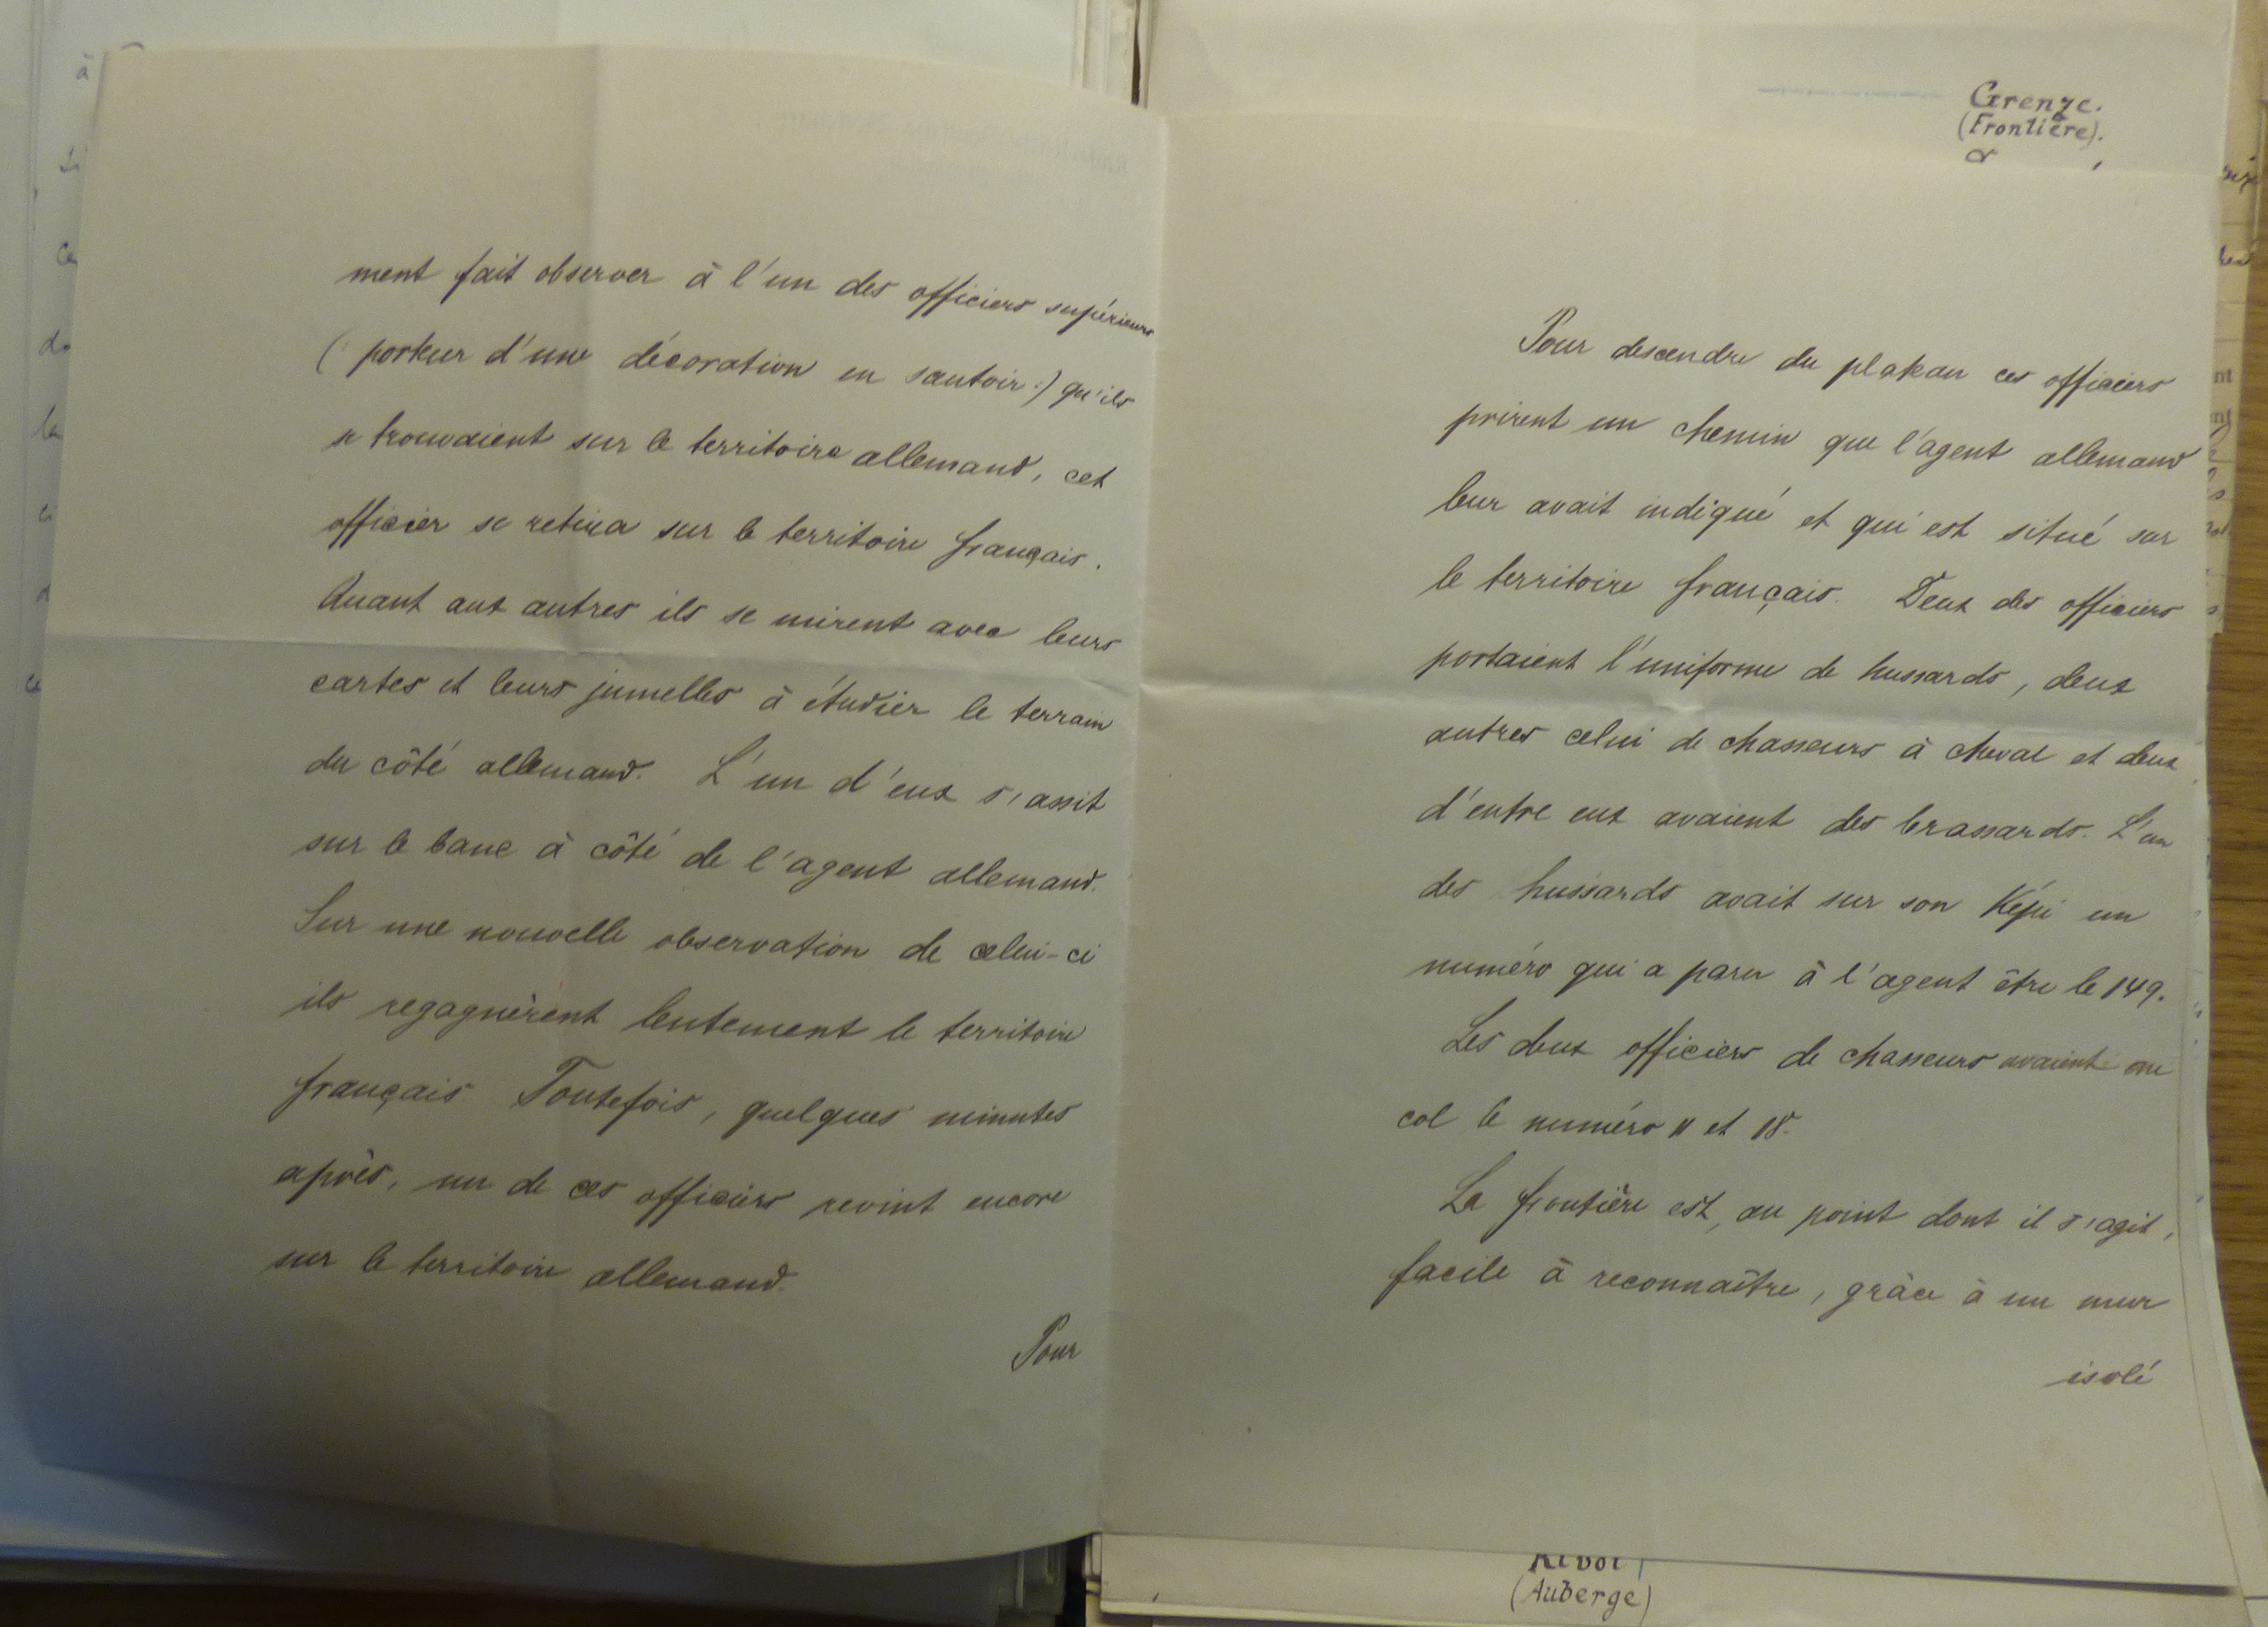 ment fait observer à l'un des officiers supérieurs
(: porteur d'une décoration en sautoir :) qu'ils
se trouvaient sur le territoire allemand, cet
officier se retira sur le territoire français.
Quant aux autres ils se mirent avec leurs
cartes et leurs jumelles à étudier le terrain
du côté allemand. L'un d'eux s'assit
sur le banc à côté de l'agent allemand.
Sur une nouvelle observation de celui-ci
ils regagnèrent lentement le territoire
français Toutefois, quelques minutes
après, un de ces officiers revint encore
sur le territoire allemand.
Pour
Grenze.
(Frontière).
Pour descendre du plateau ces officiers
prirent un chemin que l'agent allemand
leur avait indiqué et qui est situé sur
le territoire français. Deux des officiers
portaient l'uniforme de hussards, deux
autres celui de chasseurs à cheval et deux
d'entre eux avaient des brassards. L'un
des hussards avait sur son Képi un
numéro qui a paru à l'agent être le 149.
Les deux officiers de chasseurs avaient au
col le numéro 11 et 18.
La frontière est, au point dont il s'agit,
facile à reconnaître, grâce à un mur
isolé
(Auberge)